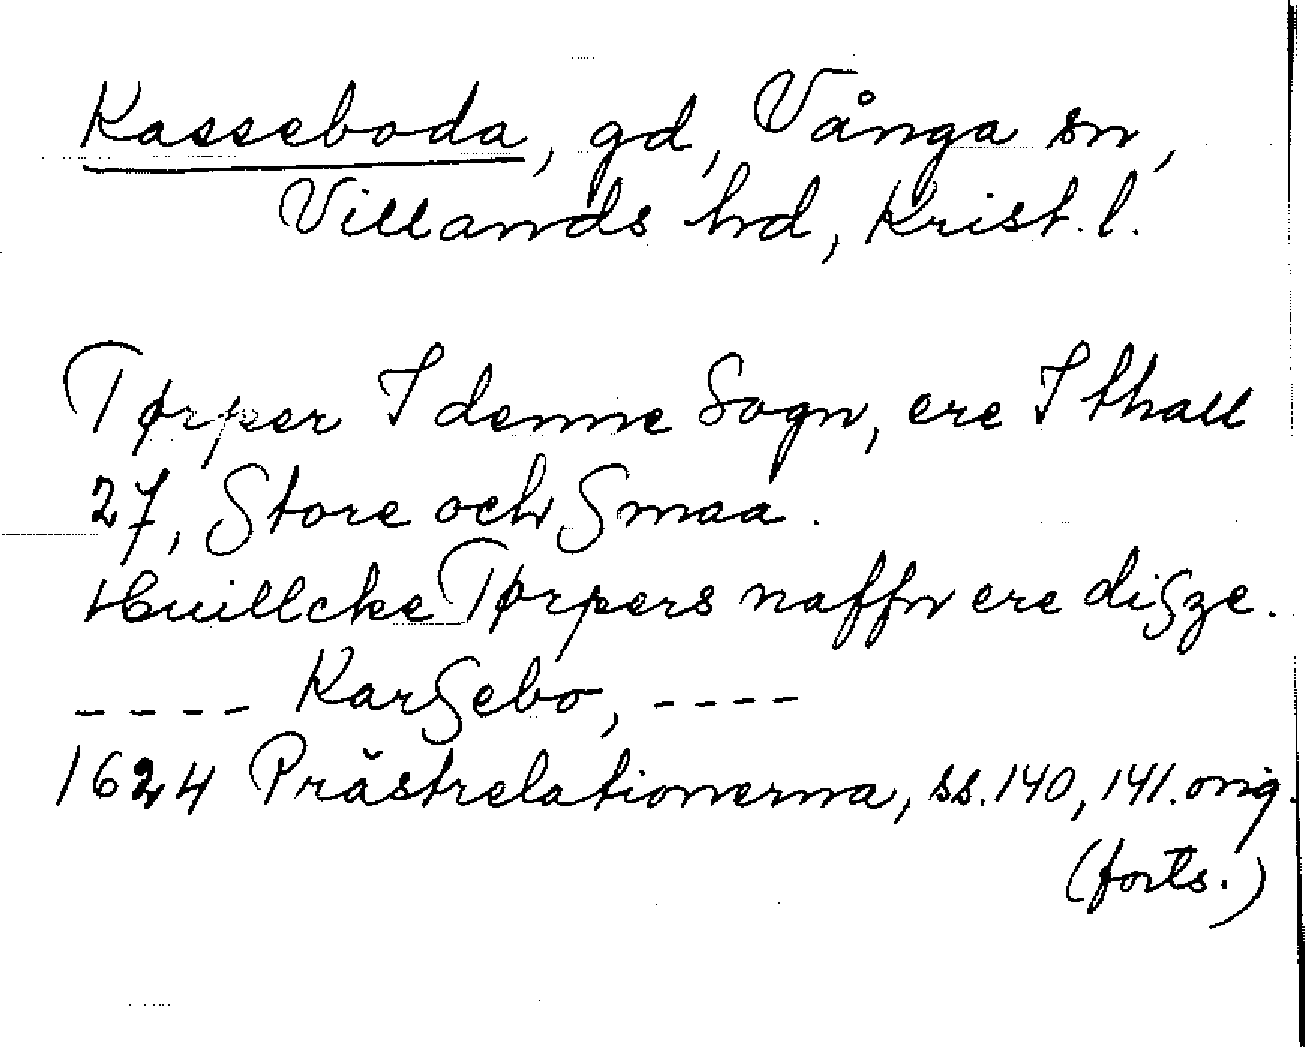 Kasseboda, gd, Vånga sn,
Villands hd, Krist. l.
Tørper I denne Sogn, ere I thall
27, Store och Smaa.
Huillcke Tørpers naffn ere disze.
---- Karsebo, ----
1624 Prästrelationerna, ss. 140, 141. orig.
(forts.)